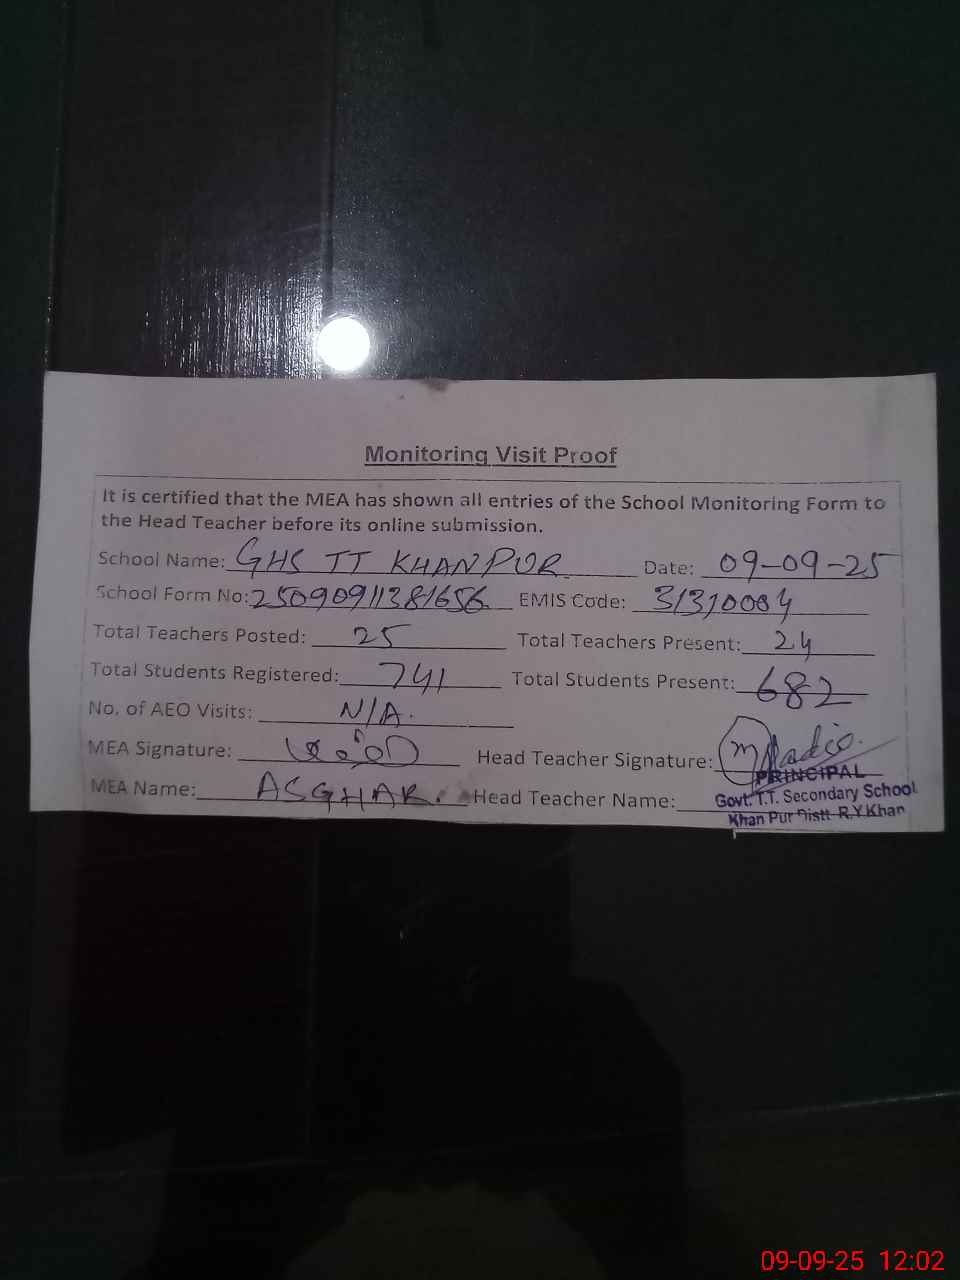 Monitoring Visit Proof
It is certified that the MEA has shown all entries of the School Monitoring Form to
the Head Teacher before its online submission.
School Name: GHS TT KHANPUR Date: 09-09-25
School Form No: 25090911381656 EMIS Code: 31310004
Total Teachers Posted: 25 Total Teachers Present: 24
Total Students Registered: 741 Total Students Present: 682
No. of AEO Visits: N/A.
MEA Signature: Head Teacher Signature:
PRINCIPAL
MEA Name: ASGHAR. Head Teacher Name: Govt. T.T. Secondary School
Khan Pur Distt R.Y.Khan
09-09-25 12:02